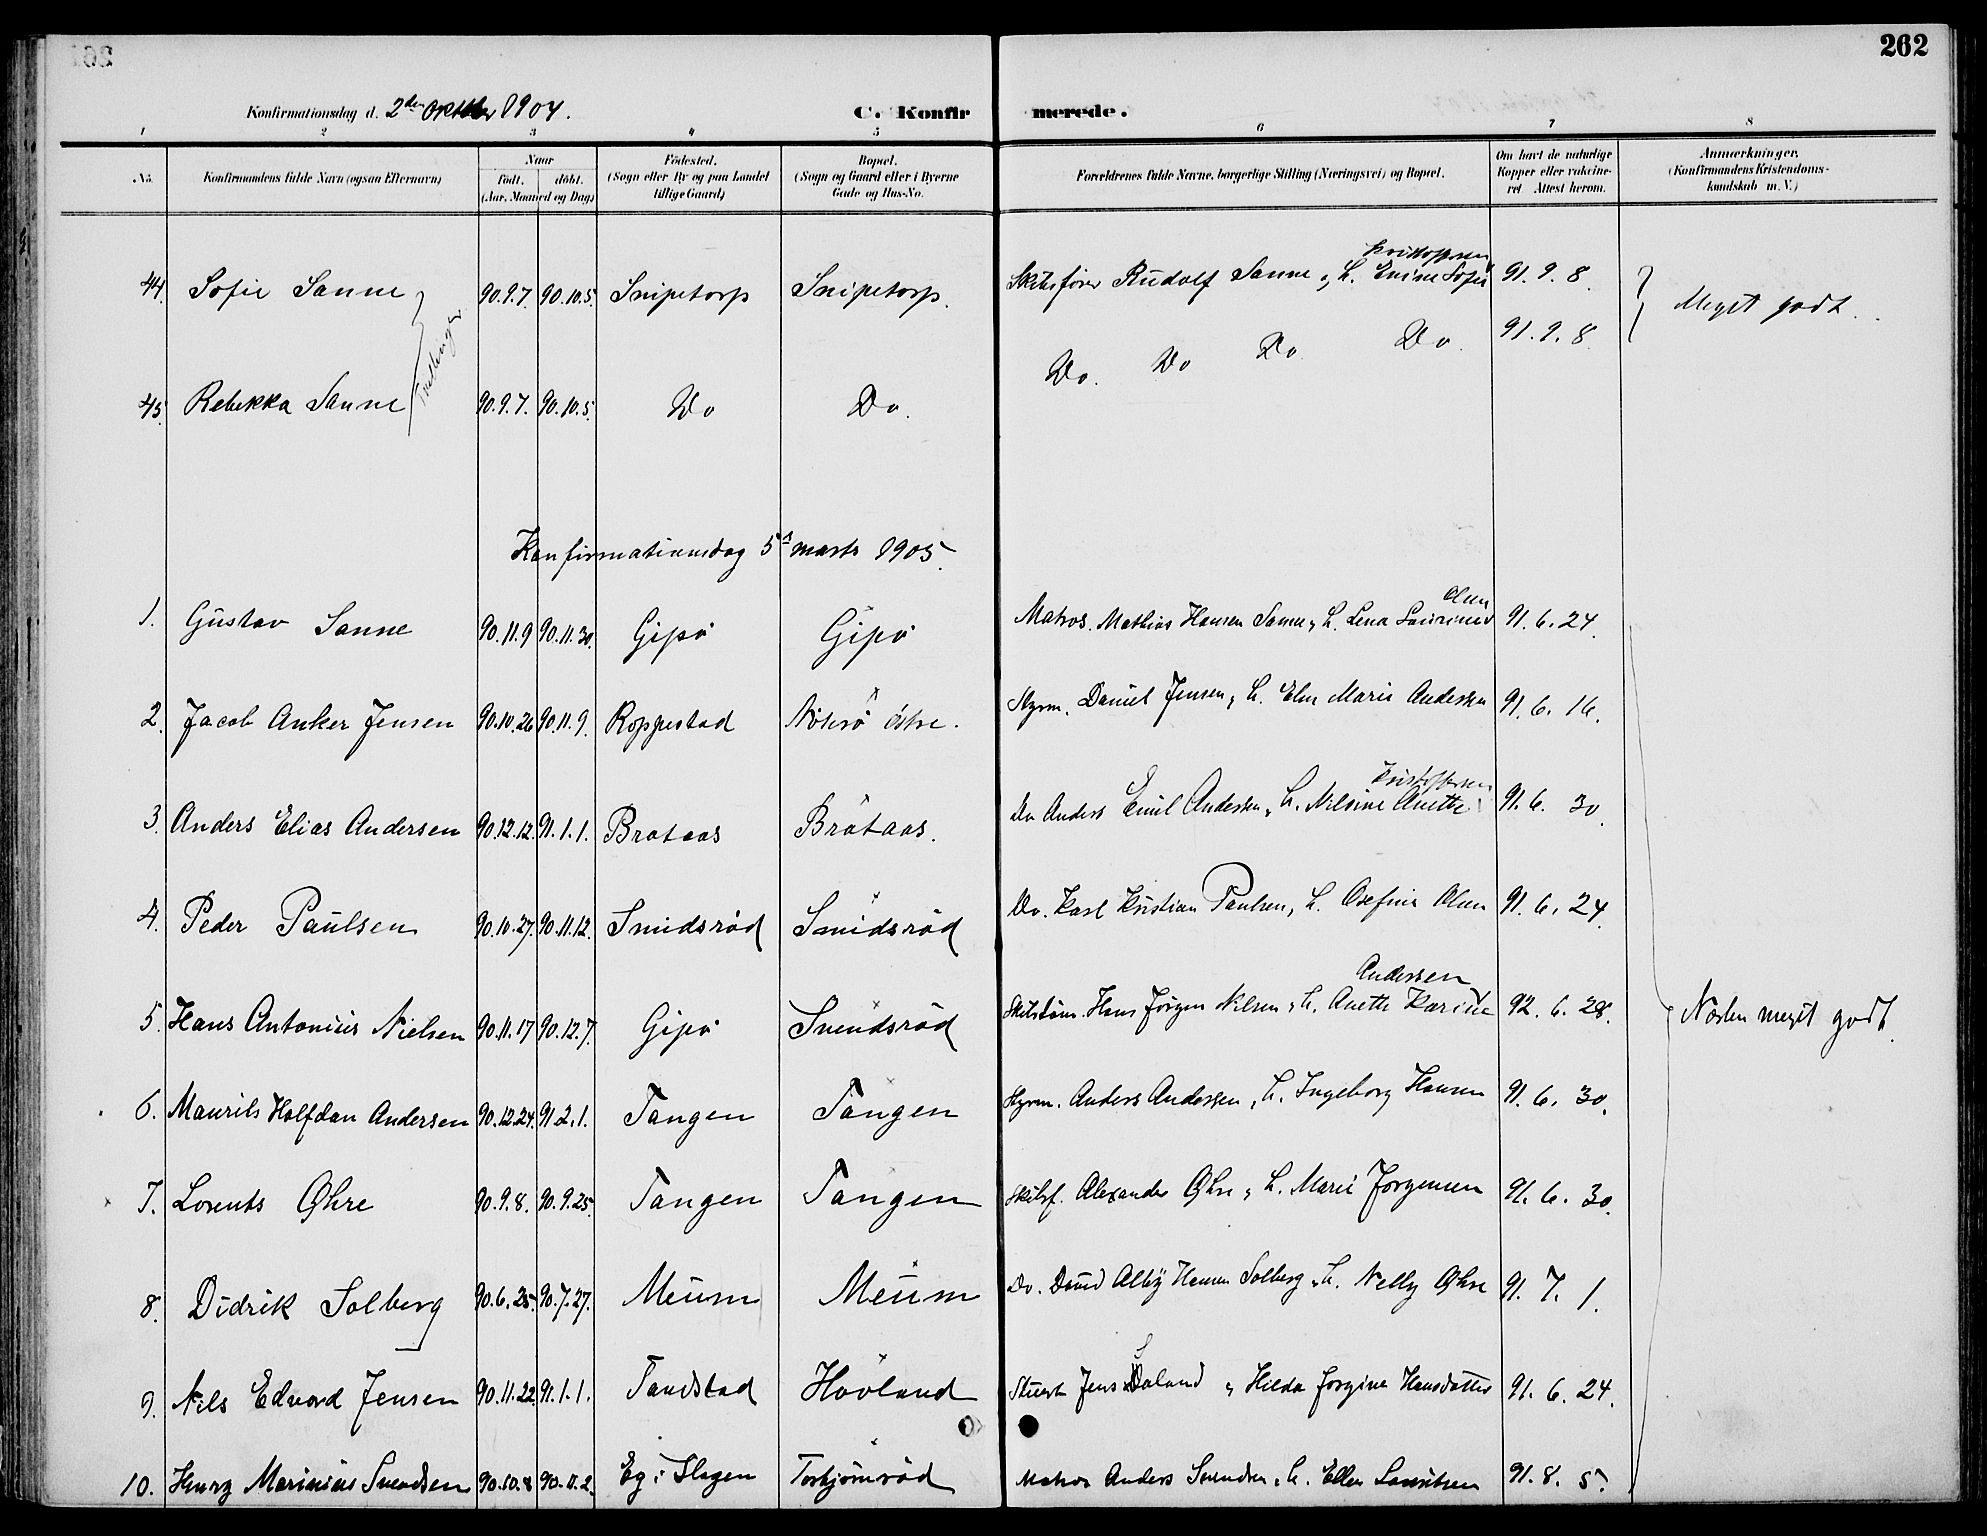 262
Konfirmationsdag d. 2den oktbr 1904.
C. Konfirmerede.
1 2 3 4 5 6 7 8
No. Konfirmandens fulde Navn (ogsaa Efternavn) Naar født. døbt. (Aar, Maaned og Dag) Fødested. (Sogn eller By og paa Landet tillige Gaard) Bopæl. (Sogn og Gaard eller i Byerne Gade og Hus-No. Forældrenes fulde Navne, borgerlige Stilling (Næringsvei) og Bopæl. Om havt de naturlige Kopper eller vaccineret. Attest herom. Anmærkninger. (Konfirmandens Kristendomskundskab m. V.)
Kristoffersen
44. Sofie Sanne 90.9.7. 90.10.5. Snipetorp Snipetorp. Skibsfører Rudolf Sanne, h. Enine Sofie 91.9.8. Meget godt.
Tvillinger
45. Rebekka Sanne 90.9.7. 90.10.5. Do Do. Do. Do Do Do. 91.9.8.
Konfirmationsdag 5te marts 1905.
Olsen
1. Gustav Sanne 90.11.9 90.11.30. Gipø Gipø Matros. Mathias Hansen Sanne, h. Lena 91.6.24.
2. Jacob Anker Jensen 90.10.26 90.11.9. Roppestad østre. Styrm. Daniel Jensen, h. Marie Andersen 91.6.16.
Kristoffersen
3. Anders Elias Andersen 90.12.12. 91.1.1. Brataas Bråtaas. Do Anders Emil Andersen, h. Nilsine Anette 91.6.30.
4. Peder Paulsen 90.10.27. 90.11.12. Smidsrød Smidsrød Do. Karl Kristian Paulsen, h. Josefine Olsen 91.6.24.
Andersen
5. Hans Antonius Nielsen 90.11.17 90.12.7. Gipø Svendsrød Skibstøm. Hans Jørgen Nilsen, h. Anette Karine 92.6.28. Næsten meget godt.
6. Maurits Halfdan Andersen 90.12.24. 91.2.1. Tangen Tangen Styrm. Anders Andersen, h. Ingeborg Hansen 91.6.30.
7. Lorents Ghre 90.9.8. 90.9.25. Tangen Tangen Skibsf. Alexander Ghre, h. Marie Jørgensen 91.6.30.
8. Didrik Solberg 90.6.25. 90.7.27. Meum Meum Do. Hansen Solberg, h. Nelly Ghre 91.7.1.
9. Nils Edvard Jensen 90.11.22. 91.1.1. Tandstad Høvland Stuert Jens, Hilda Jorgine Hansdatter 91.6.24.
10. Henry Marinius Svendsen 90.10.8 90.11.2. Eg i Slagen Torbjørnrød Matros Anders Svendsen, h. Ellen Lauritsen 91.8.5.